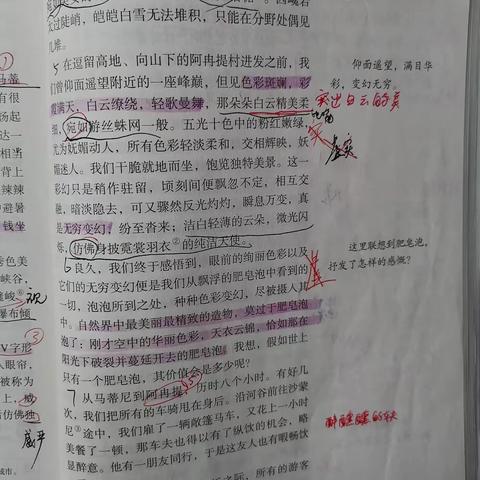 太过陡峭，皑皑白雪无法堆积，只能在分野处偶见
几堆。
5 在逗留高地、向山下的阿冉提村进发之前，我
们曾仰面遥望附近的一座峰巅，但见色彩斑斓，彩
霞满天，白云缭绕，轻歌曼舞，那朵朵白云精美柔
细，宛如游丝蛛网一般。五光十色中的粉红嫩绿，
尤为妩媚动人，所有色彩轻淡柔和，交相辉映，妩
媚迷人。我们干脆就地而坐，饱览独特美景。这一
彩幻只是稍作驻留，顷刻间便飘忽不定，相互交
融，暗淡隐去，可又骤然反光灼灼，瞬息万变，真
是无穷变幻；纷至沓来；洁白轻薄的云朵，微光闪
烁，仿佛身披霓裳羽衣②的纯洁天使。
6 良久，我们终于感悟到，眼前的绚丽色彩以及
它们的无穷变幻便是我们从飘浮的肥皂泡中看到的
一切，泡泡所到之处，种种色彩变幻，尽被摄人其
中。自然界中最美丽最精致的造物，莫过于肥皂
泡了：刚才空中的华丽色彩，天衣云锦，恰如那在
阳光下破裂并蔓延开去的肥皂泡。我想，假如世上
只有一个肥皂泡，其价值会是多少呢？
7 从马蒂尼到阿冉提，历时八个小时。有好几
次，我们把所有的车骑甩在身后。沿河谷前往沙蒙
尼③途中，我们雇了一辆敞篷马车，又花上一小时
美餐了一顿，那车夫也得以有了纵饮的机会，略
显醉意。他有一朋友同行，于是这友人也有暇畅饮
所有的游客
仰面遥望，满目华
彩，变幻无穷。
突出白云的美
虚实
这里联想到肥皂泡，
抒发了怎样的感慨？
马蒂
有很
汤起
达一
相当
背上
辣辣
中避暑
钱坐
秀色美
峡谷，
瀑布倾
V字形
人眼帘，
被称为
仿佛独
城市。